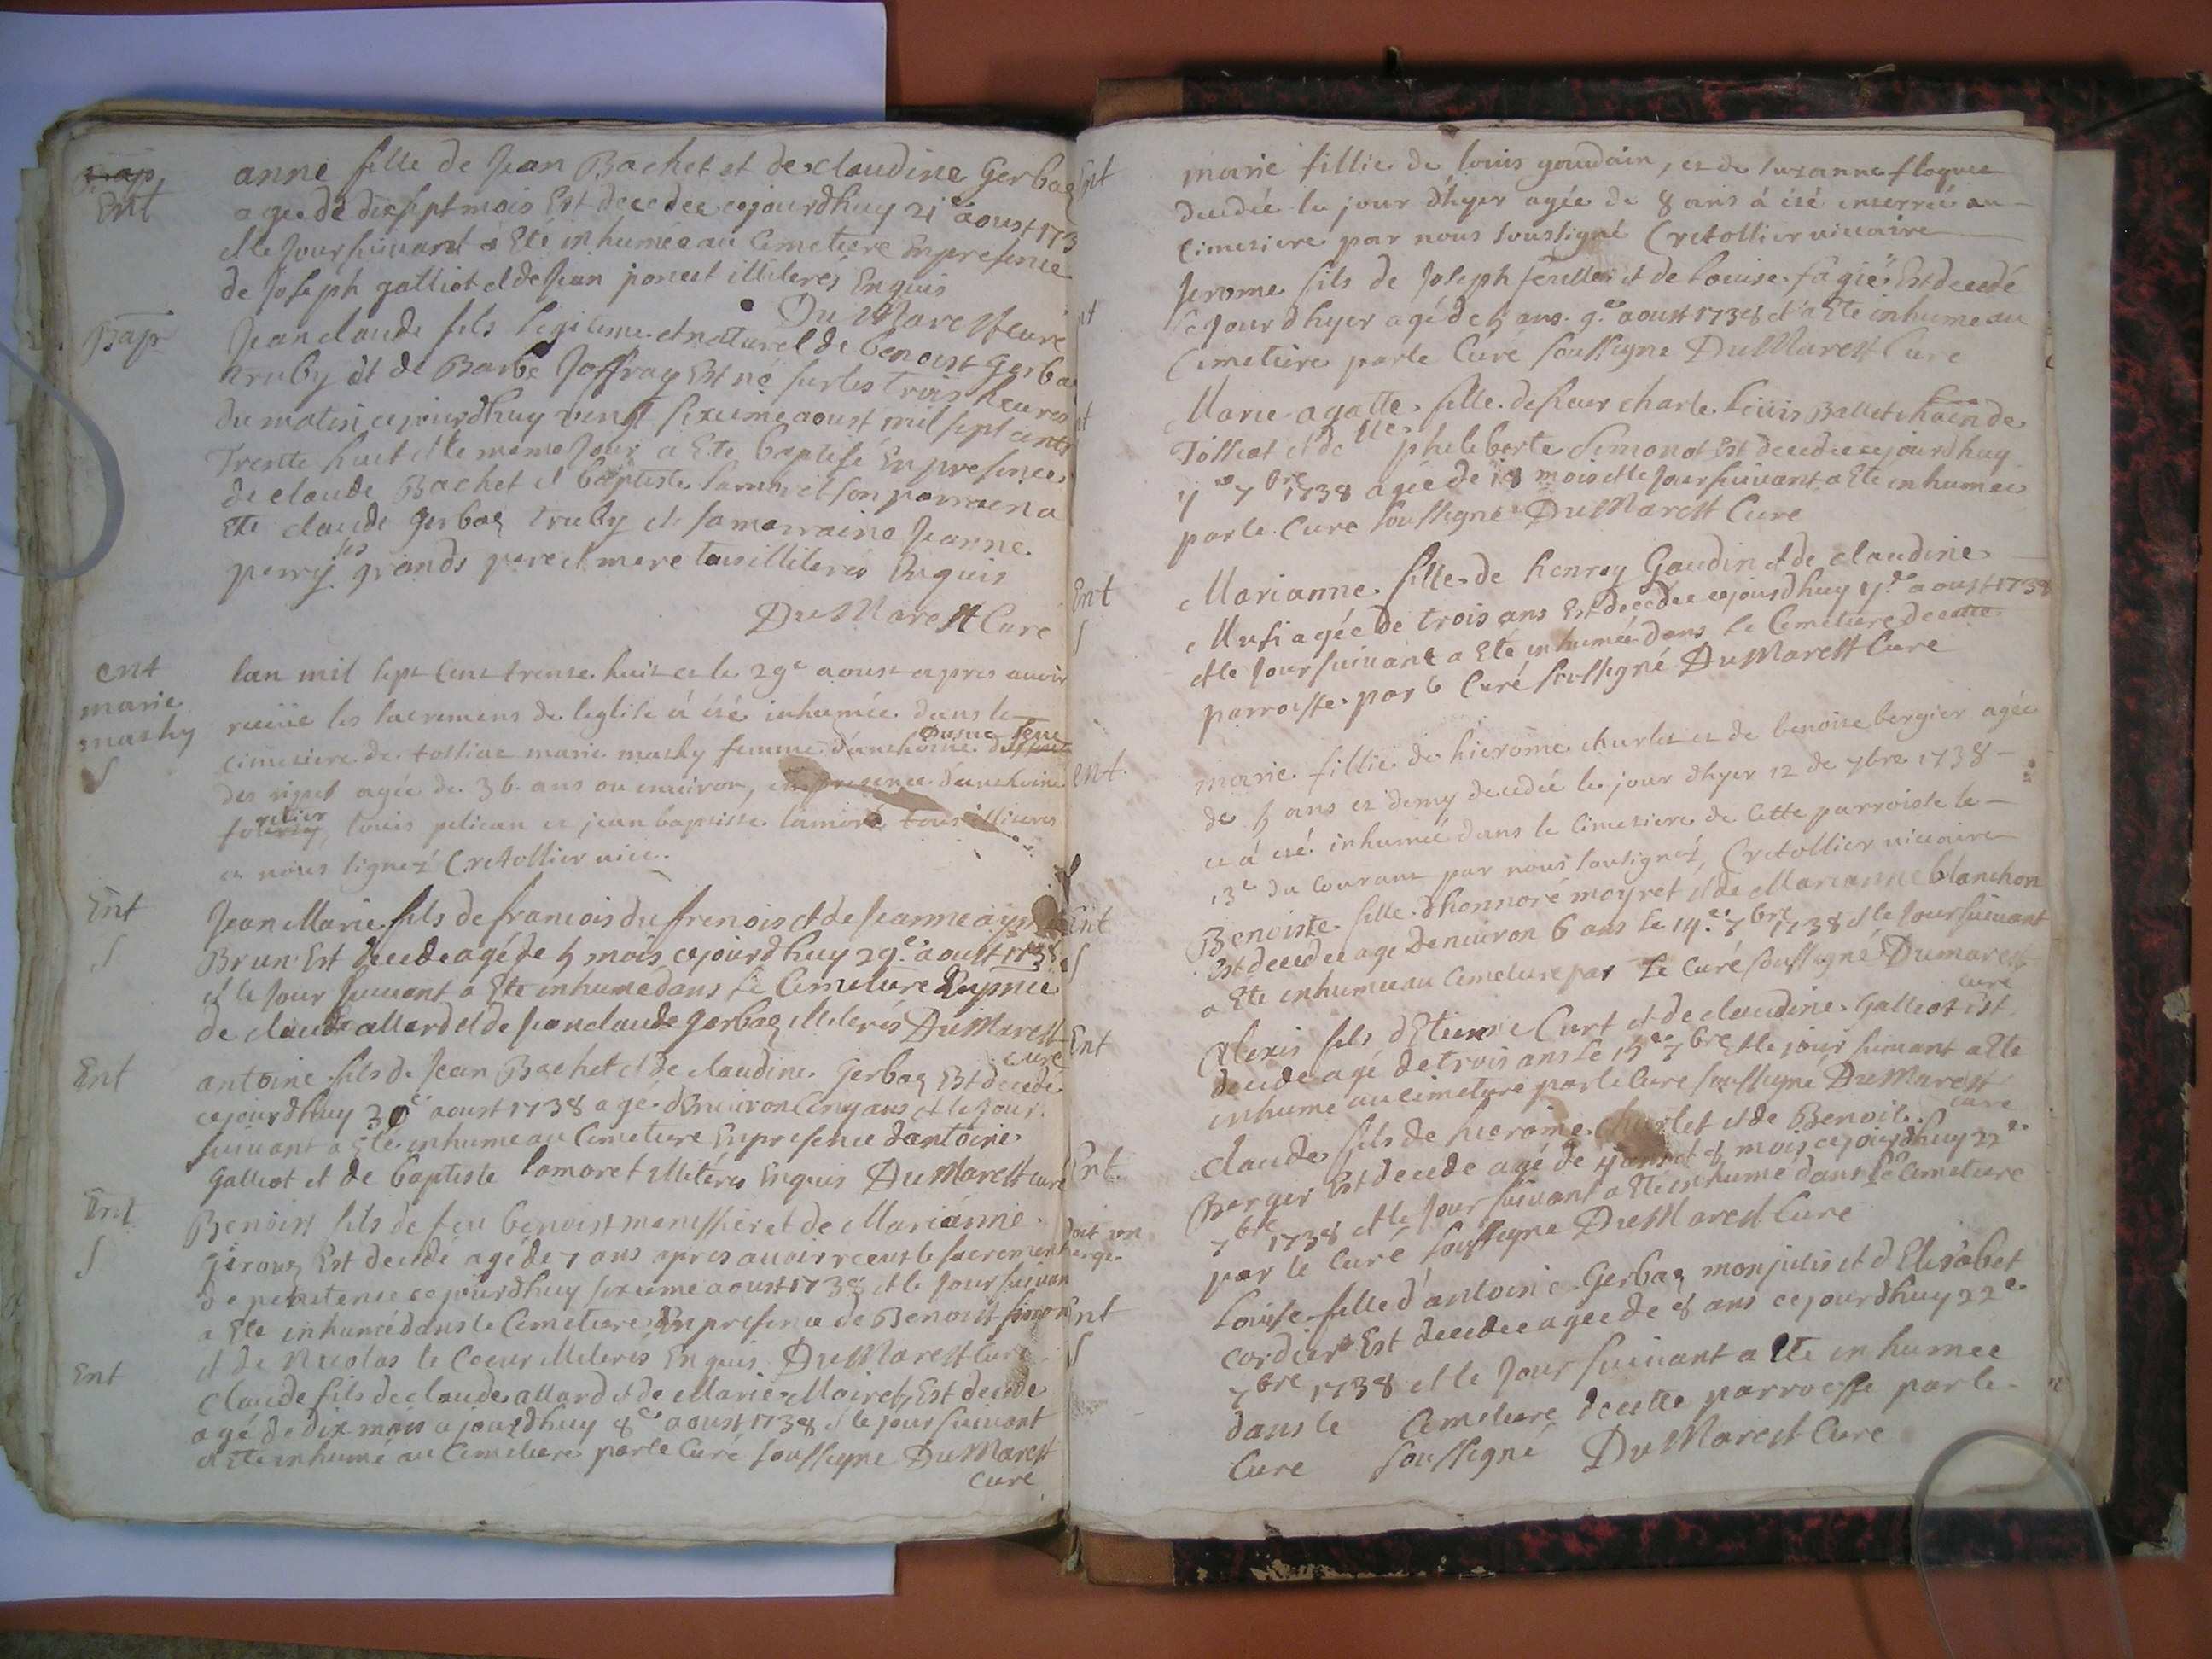 Bap
Ent
anne fille de Jean Bachet et de claudine Gerbaz
agee de dixsept mois Est decedee cejourdhuy 21e aoust 173
et le Jour suivant a Ete inhumée au Cimetiere En presence
de Joseph galliot et de Jean poncet illiterés Enquis
DuMarest cure
Bap
Jean claude fils legitime et naturel de benoist Gerba
truby et de Barbe Joffray Est né sur les trois heures
du matin cejourdhuy vingt sixieme aoust mil sept cents
Trente huit et le meme Jour a Ete baptisé En presence
de claude Bachet et baptiste lamoret son parrain a
Ete claude gerbaz truby et sa marraine Jeanne
perry ses grands pere et mere tous illiterés Enquis
DuMarest Cure
ent
marie
mashy
S
lan mil sept cent trente huit et le 29e aoust apres avoir
recüe les sacremens de leglise à été inhumée dans le
cimetiere de tossiat marie mashy femme d'anthoine
agée de 36 ans ou environ, en presence d'anthoine
louis pelican et jean baptiste lamoré tous illiteres
et nous signez Cretollier vicc.
Ent
S
Jean Marie fils de francois du frenois et de Jeanne
Brun Est decede agé de 5 mois cejourdhuy 29e aoust 1738
et le Jour suivant a Ete inhume dans le Cimetiere Enpnce
de claude allard et de Jean claude gerbaz illiterés DuMarest
cure
Ent
antoine fils de Jean Bachet et de claudine Gerbaz Est decede
cejourdhuy 30e aoust 1738 agé d'Environ cinq ans et le Jour
suivant a Ete inhume au Cimetiere En presence d'antoine
Galliot et de baptiste lamoret illitérés Enquis DuMarest curé
Ent
S
Benoist fils de feu benoist manissier et de Marianne
Girouz Est decedé agé de 7 ans apres avoir receut le sacrement
de penitence cejourdhuy sixieme aoust 1738 et le Jour suivan
a Ete inhumé dans le Cimetiere En presence de Benoist simon
et de Nicolas le Coeur illiterés Enquis DuMarest Cure
Ent
claude fils de claude allard et de Marie Moiret Est decede
agé de dix mois cejourdhuy 8e aoust 1738 et le Jour suivant
a Ete inhumé au Cimetiere par le Curé soussigne DuMarest
cure
Ent
marie fillie de louis goudain, et de suzanne floquee
decedée le jour d'hyer agée de 8 ans à été enterrée au
cimetiere par nous soussigné Cretollier viccaire
Jerome fils de Joseph et de Louise Est decedé
le Jour dhyer agé de 5 ans 9e aoust 1738 et a Ete inhume au
Cimetiere par le Cure soussigne DuMarest Cure
Marie agatte fille de sieur charle Loüis Ballet de
Tossiat et de lle philiberte Simonot Est decedee cejourdhuy
7bre 1738 agée de 18 mois et le Jour suivant a Ete inhumee
par le Cure soussigne DuMarest Cure
Ent
S
Marianne fille de henry Gaudin et de claudine
Musi agée de trois ans Est decedee cejourdhuy aoust 1738
et le Jour suivant a Eté inhumée dans le Cimetiere de cette
parroisse par le Curé soussigné DuMarest Cure
ent.
marie fillie de hierome churlet et de benoite bergier agée
de 5 ans et demy decedée le jour dhyer 12 de 7bre 1738
et à été inhumée dans le cimetiere de cette parroisse le
13e du courant par nous soussignéz, Cretollier viccaire
Ent
S
Benoiste fille dhonnoré moyret et de Marianne blanchon
Est decedee age Denviron 6 ans le 14e 7bre 1738 et le Jour suivant
a Ete inhumee au Cimetiere par Le curé soussigné Dumarest
cure
Ent
Alexis fils d'Etienne Curt et de claudine Galliot Est
decede agé de trois ans Le 15e 7bre et le jour suivant a Ete
inhume au cimetiere par le Cure soussigné DuMarest
cure
Ent.
claude fils de hierome churlet et de Benoite
Bergier Est decede agé de mois cejourdhuy 22e
7bre 1738 et le Jour suivant a Eté inhume dans le Cimetiere
par le Curé soussigne DuMarest Cure
Ent
S
Louise fille d'antoine Gerbaz monjulis et d'Elisabet
cordier Est decedee agee de 8 ans cejourdhuy 22e
7bre 1738 et le Jour suivant a Ete inhumee
dans le Cimetiere de cette parroisse par le
Cure soussigné DuMarest Cure